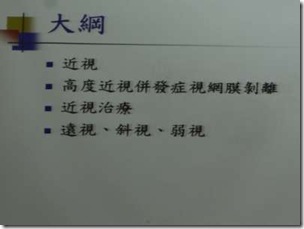 大綱
近視
高度近視併發症視網膜剝離
近視治療
遠視、斜視、弱視